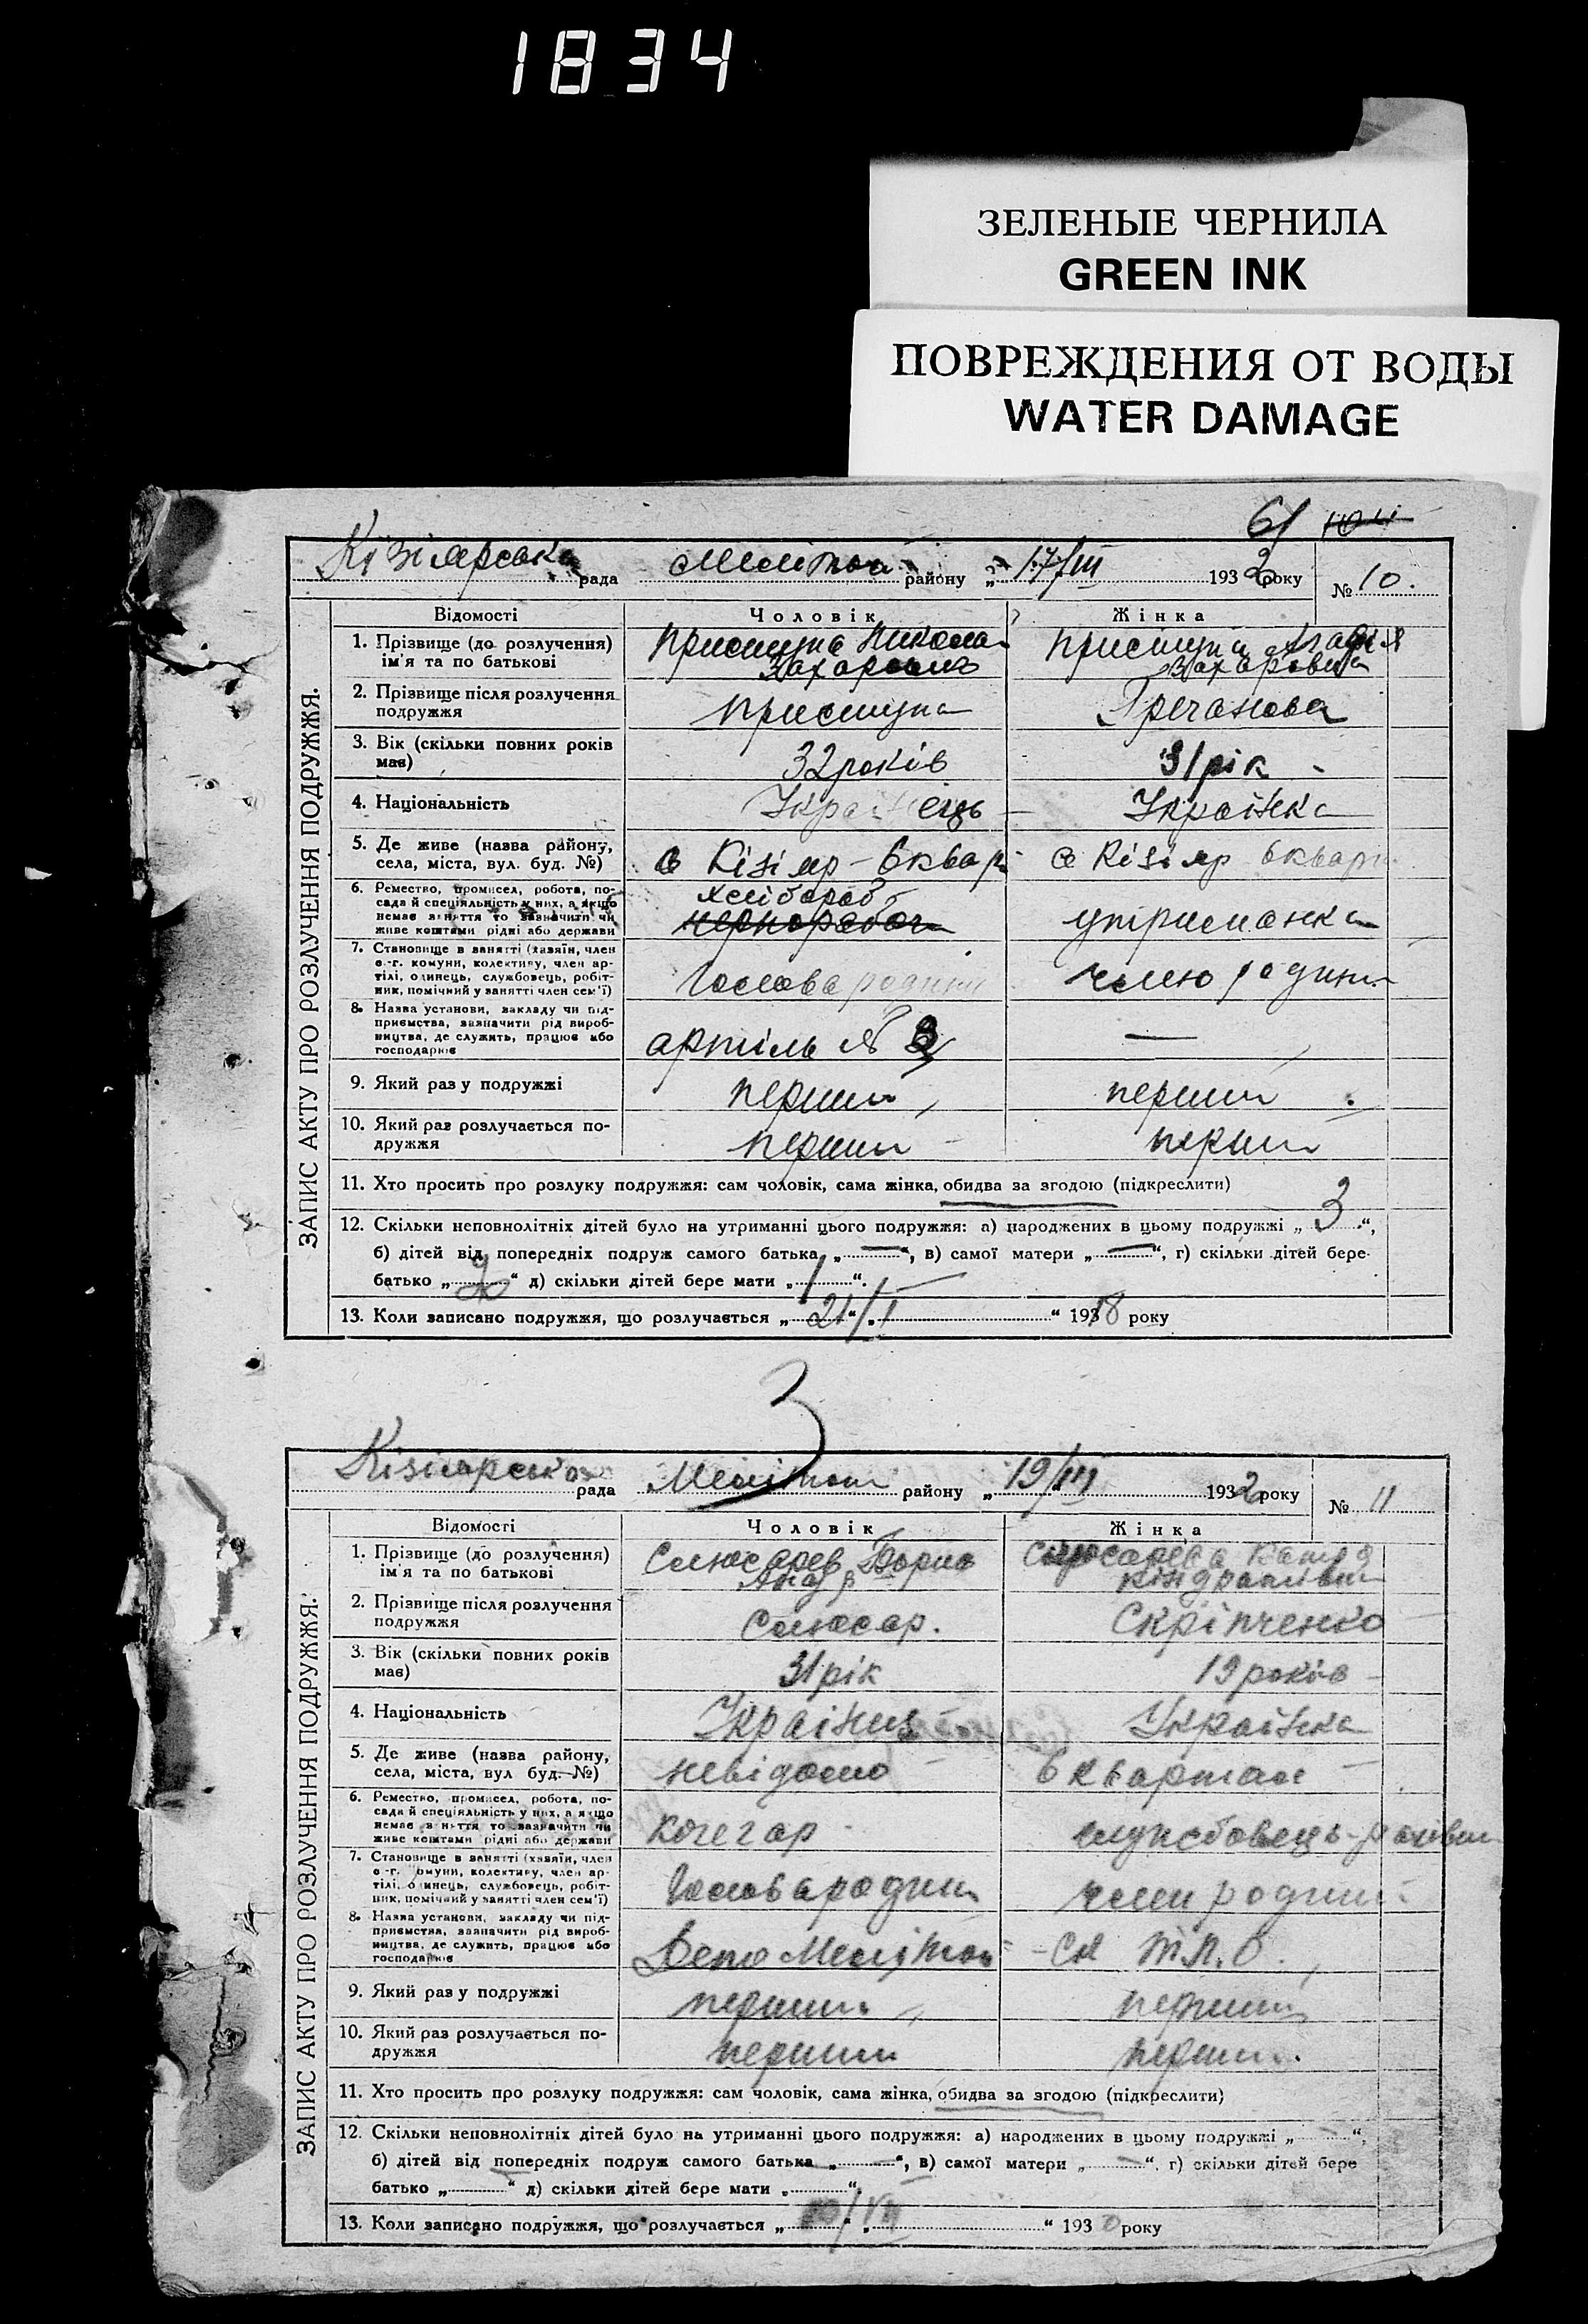 1834
ЗЕЛЕНЫЕ ЧЕРНИЛА
GREEN INK
ПОВРЕЖДЕНИЯ ОТ ВОДЫ
WATER DAMAGE
61
ЗАПИС АКТУ ПРО РОЗЛУЧЕННЯ ПОДРУЖЖЯ.
Кізіярська рада Меліто району „ 17/III 1932 року № 10.
Відомості Чоловік Жінка
1. Прізвище (до розлучення) Приступа Никола Приступа Агафія
ім'я та по батькові Захарович Захаровна
2. Прізвище після розлучення Приступа Гречанова
подружжя
3. Вік (скільки повних років 32 років 31 рік
має)
4. Національність Українець Українка
5. Де живе (назва району,
села, міста, вул. буд. №) с Кізіяр – 6 кварт с Кізіяр 6 кварт
6. Ремество, промисел, робота, по- хлібороб
сада й спеціяльність у них, а якщо
немає заняття то зазначити чи чернороboч утриманка
живе коштами рідні або держави
7. Становище в занятті (хазяїн, член
с.-г. комуни, колективу, член ар-
тілі, одинець, службовець, робіт- Голова родини член родини
ник, помічний у занятті член сем'ї)
8. Назва установи, закладу чи під-
приємства, зазначити рід вироб-
ництва, де служить, працює або артіль № 3 —
господарює
9. Який раз у подружжі перший перший
10. Який раз розлучається по-
дружжя перший перший
11. Хто просить про розлуку подружжя: сам чоловік, сама жінка, обидва за згодою (підкреслити)
12. Скільки неповнолітніх дітей було на утриманні цього подружжя: а) народжених в цьому подружжі „ 3 “,
б) дітей від попередніх подруж самого батька „ — “, в) самої матери „ — “, г) скільки дітей бере
батько „ 2 “ д) скільки дітей бере мати „ 1 “.
13. Коли записано подружжя, що розлучається „ 21 “ / I “ 1918 року
3
ЗАПИС АКТУ ПРО РОЗЛУЧЕННЯ ПОДРУЖЖЯ.
Кізіярська рада Меліто району „ 19/III 1932 року № 11
Відомості Чоловік Жінка
1. Прізвище (до розлучення) Слюсарев Борис Слюсарева
ім'я та по батькові
2. Прізвище після розлучення Слюсар. Скріпченко
подружжя
3. Вік (скільки повних років 31 рік 19 років
має)
4. Національність Українець Українка
5. Де живе (назва району,
села, міста, вул буд. №) невідомо 6 квартал
6. Ремество, промисел, робота, по-
сада й спеціяльність у них, а якщо
немає заняття то зазначити чи кочегар службовець-
живе коштами рідні або держави
7. Становище в занятті (хазяїн, член
с.-г. комуни, колективу, член ар-
тілі, одинець, службовець, робіт- Голова родини член родини
ник, помічний у занятті член сем'ї)
8. Назва установи, закладу чи під-
приємства, зазначити рід вироб-
ництва, де служить, працює або Депо Меліто
господарює
9. Який раз у подружжі перший перший
10. Який раз розлучається по-
дружжя перший перший.
11. Хто просить про розлуку подружжя: сам чоловік, сама жінка, обидва за згодою (підкреслити)
12. Скільки неповнолітніх дітей було на утриманні цього подружжя: а) народжених в цьому подружжі „ — “,
б) дітей від попередніх подруж самого батька „ — “, в) самої матери „ — “. г) скільки дітей бере
батько „ “ д) скільки дітей бере мати „ “.
13. Коли записано подружжя, що розлучається „ “ / VII “ 1930 року